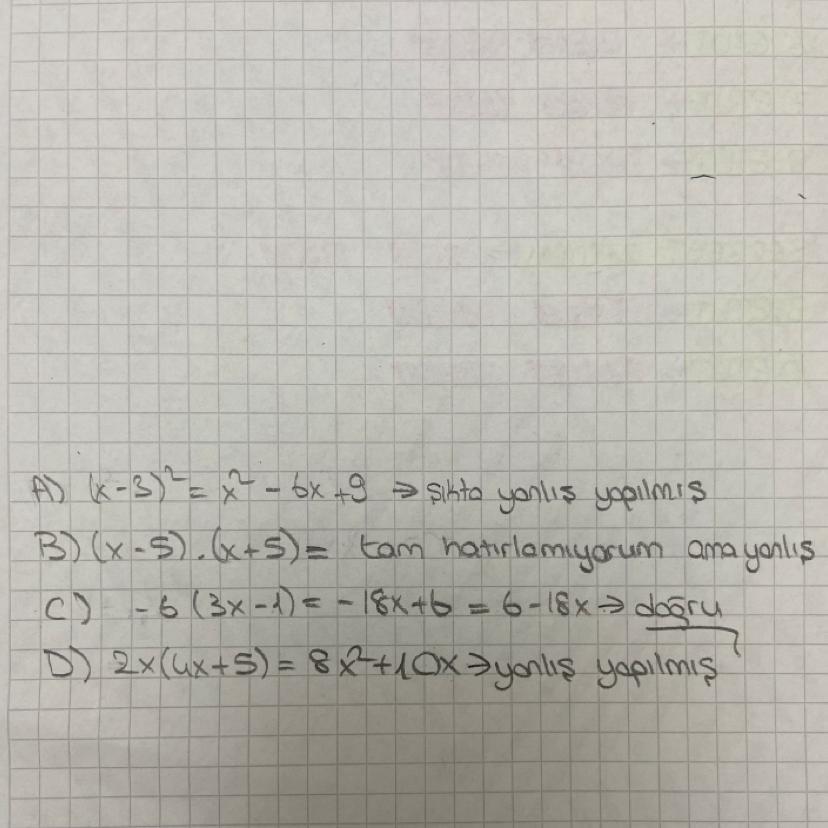 A) (x-3)² = x² - 6x +9 → şıkta yanlış yapılmış
B) (x-5).(x+5)= tam hatırlamıyorum ama yanlış
C) -6 (3x-1) = -18x+6 = 6-18x → doğru
D) 2x(4x+5) = 8x²+10x → yanlış yapılmış